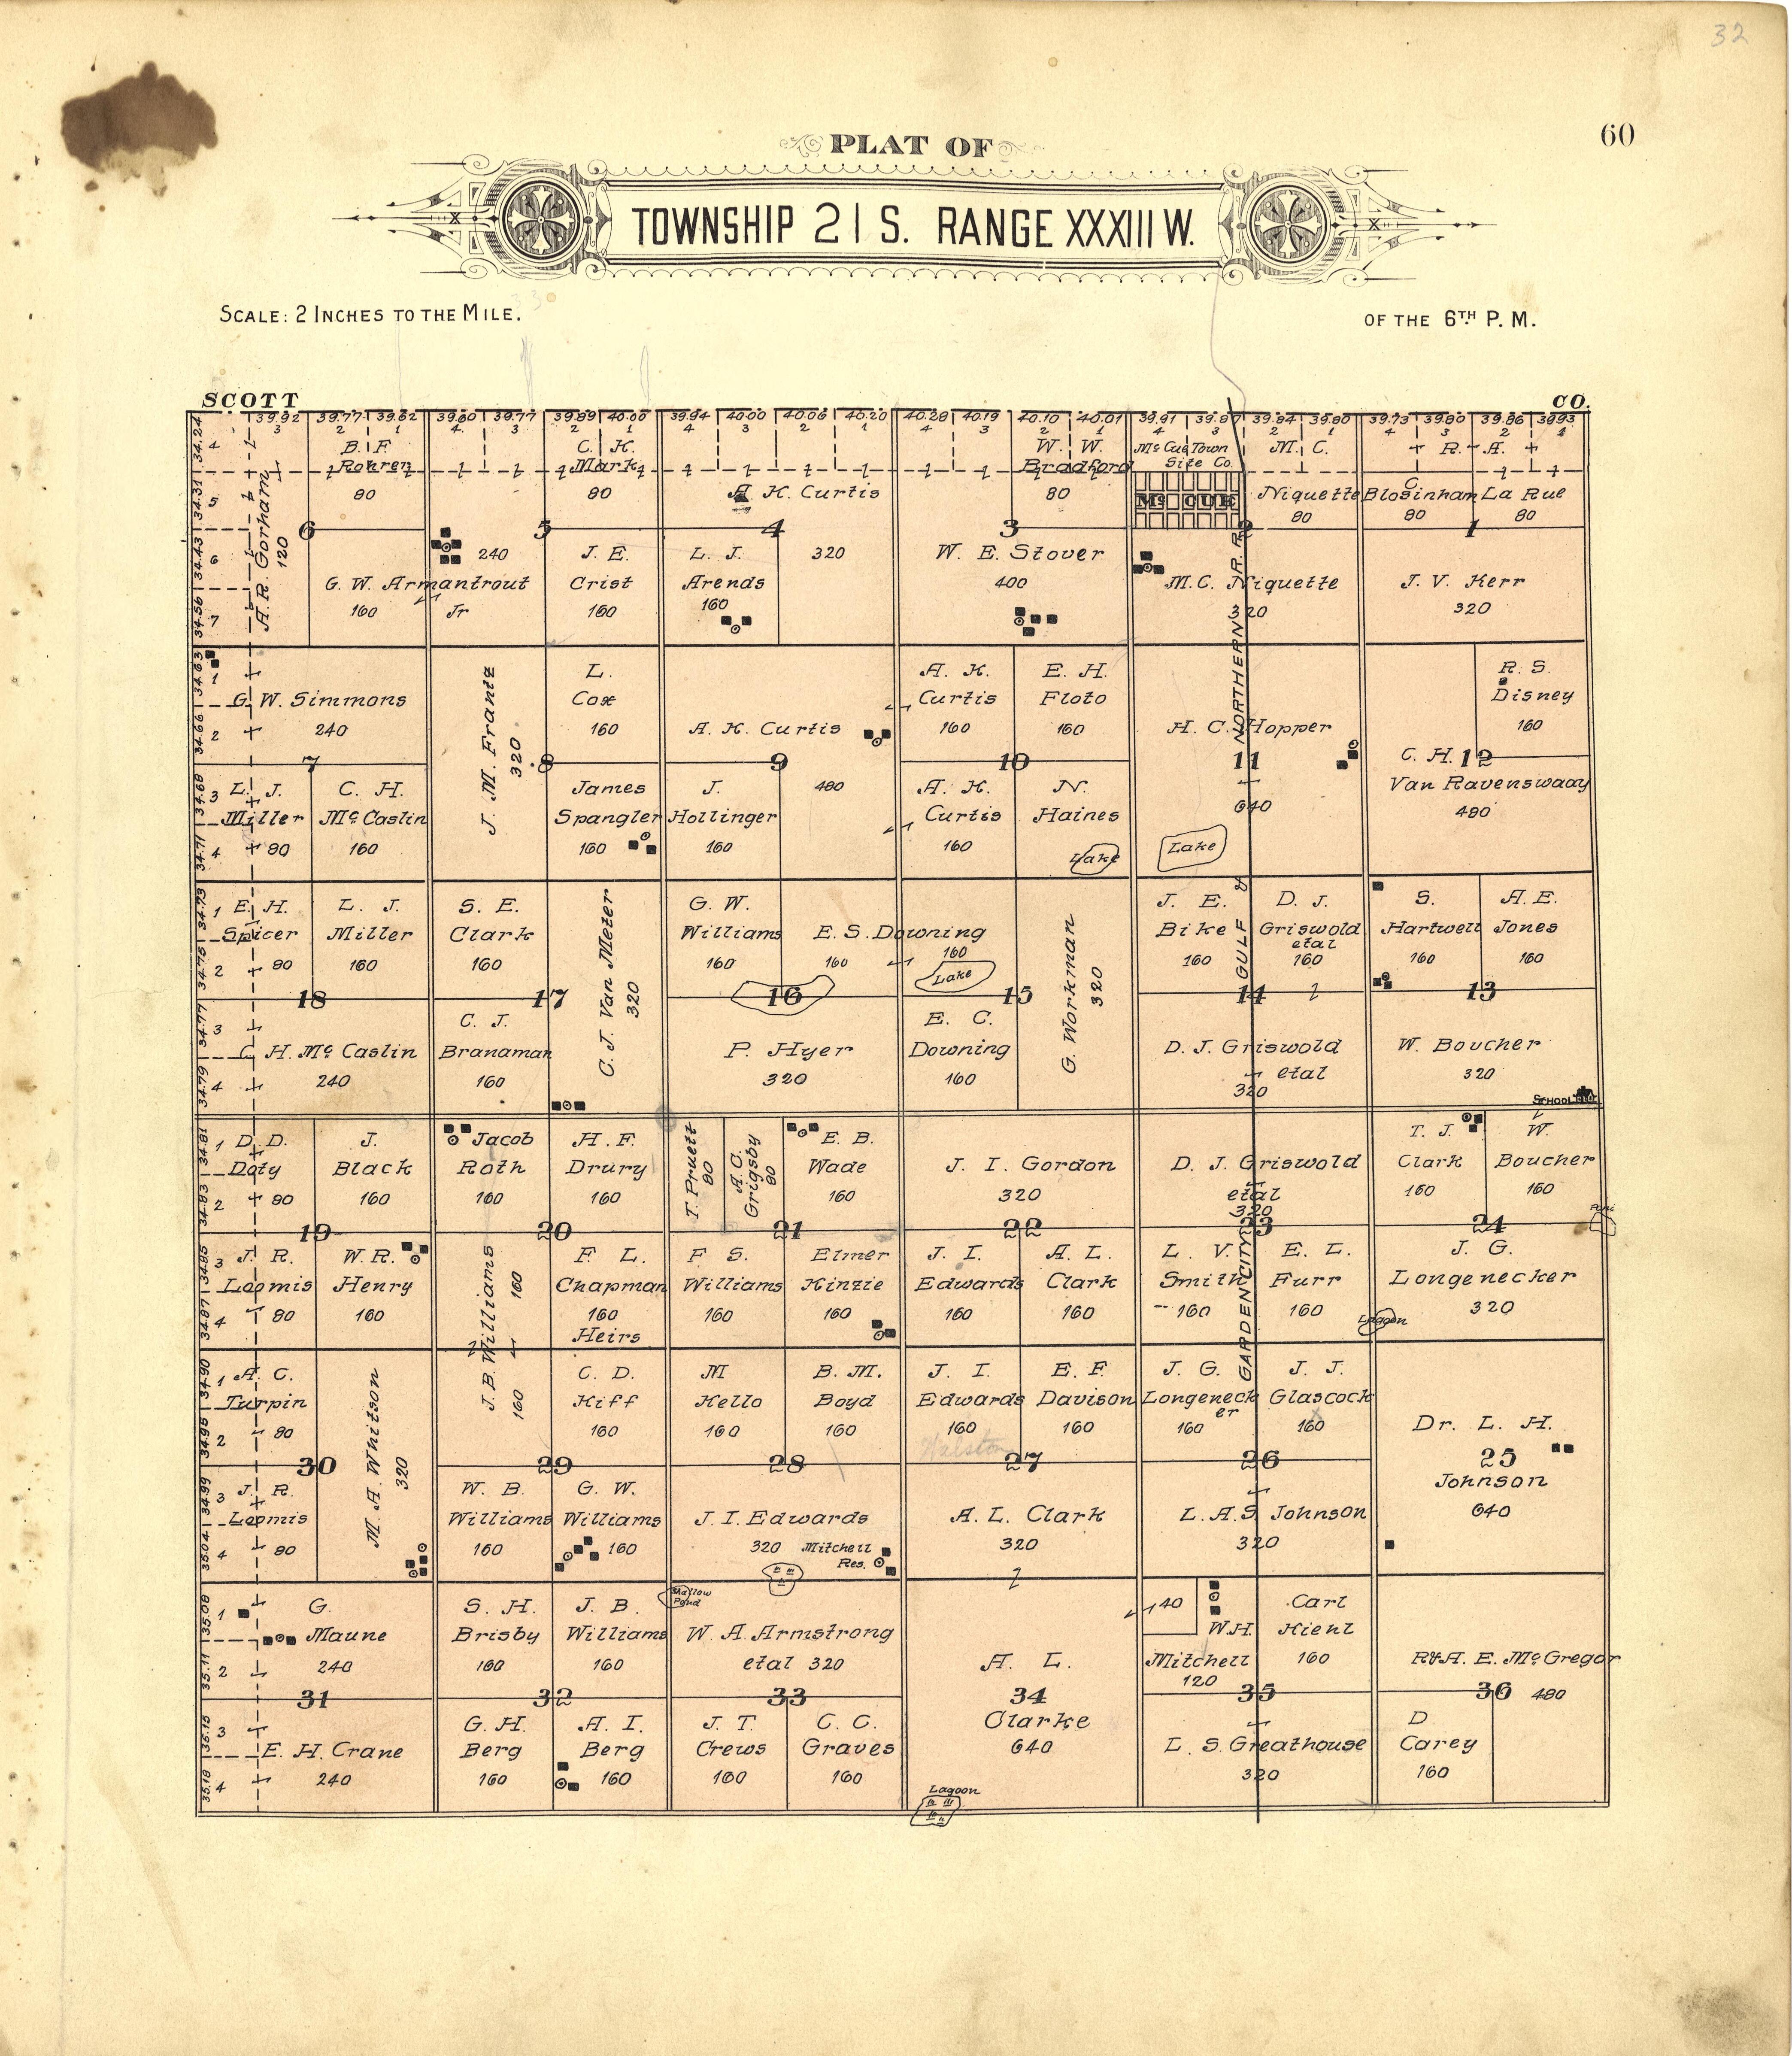 32
60
PLAT OF
TOWNSHIP 21 S. RANGE XXXIII W.
SCALE: 2 INCHES TO THE MILE.
OF THE 6TH P. M.
SCOTT
CO.
39.92 39.77 39.62 39.60 39.77 39.89 40.00 39.94 40.00 40.06 40.20 40.28 40.19 40.10 40.01 39.91 39.87 39.84 39.80 39.73 39.80 39.86 39.93
3 2 1 4 3 2 1 4 3 2 1 4 3 2 1 4 3 2 1 4 3 2 1
34.24
4
34.31
5
34.43
6
34.56
7
A. R. Gorham
120
B. F.
Rohren
80
6
G. W. Armantrout
Jr
160
240
C. K.
Mark
80
5
J. E.
Crist
160
A. K. Curtis
320
4
L. J.
Arends
160
W. W.
Bradford
80
3
W. E. Stover
400
McCue Town
Site Co.
McCUE
M. C.
Niquette
80
2
M. C. Niquette
320
C.
Blosinham
80
R. A.
La Rue
80
1
J. V. Kerr
320
GARDEN CITY GULF & NORTHERN R. R.
34.63
1
34.66
2
34.68
3
34.71
4
G. W. Simmons
240
7
L. J.
Miller
80
C. H.
McCaslin
160
J. M. Frantz
320
8
L.
Cox
160
James
Spangler
160
A. K. Curtis
480
9
J.
Hollinger
160
A. K.
Curtis
160
E. H.
Floto
160
10
A. K.
Curtis
160
N.
Haines
Lake
H. C. Hopper
11
640
Lake
R. S.
Disney
160
C. H.
12
Van Ravenswaay
480
34.73
1
34.75
2
34.77
3
34.79
4
E. H.
Spicer
80
L. J.
Miller
160
18
C. H. McCaslin
240
S. E.
Clark
160
17
C. J.
Branaman
160
C. J. Van Meter
320
G. W.
Williams
160
E. S. Downing
160
160
Lake
16
P. Hyer
320
15
E. C.
Downing
160
G. Workman
320
J. E.
Bike
160
D. J.
Griswold
etal
160
14
D. J. Griswold
etal
320
S.
Hartwell
160
A. E.
Jones
160
13
W. Boucher
320
SCHOOL
34.81
1
34.83
2
34.85
3
34.87
4
D. D.
Doty
80
J.
Black
160
19
J. R.
Loomis
80
W. R.
Henry
160
Jacob
Roth
160
H. F.
Drury
160
20
J. B. Williams
160
160
F. L.
Chapman
160
Heirs
T. Pruett
80
A. C.
Grigsby
80
E. B.
Wade
160
21
F. S.
Williams
160
Elmer
Kinzie
160
J. I. Gordon
320
22
J. I.
Edwards
160
A. L.
Clark
160
D. J. Griswold
etal
320
23
L. V.
Smith
160
E. L.
Furr
160
T. J.
Clark
160
W.
Boucher
160
24
J. G.
Longenecker
320
Lagoon
34.90
1
34.95
2
34.99
3
35.04
4
A. C.
Turpin
80
M. A. Whitson
320
30
J. R.
Loomis
80
C. D.
Kiff
160
29
W. B.
Williams
160
G. W.
Williams
160
M
Kello
160
B. M.
Boyd
160
28
J. I. Edwards
320
Mitchell
Res.
J. I.
Edwards
160
E. F.
Davison
160
Walston
27
A. L. Clark
320
J. G.
Longeneck
er
160
J. J.
Glascock
160
26
L. A. S. Johnson
320
Dr. L. H.
25
Johnson
640
35.08
1
35.11
2
35.15
3
35.18
4
G.
Maune
240
31
E. H. Crane
240
S. H.
Brisby
160
J. B.
Williams
160
32
G. H.
Berg
160
A. I.
Berg
160
Shallow
Pond
W. A. Armstrong
etal 320
33
J. T.
Crews
160
C. C.
Graves
160
A. L.
34
Clarke
640
Lagoon
40
W. H.
Mitchell
120
Carl
Kienl
160
35
L. S. Greathouse
320
R & A. E. McGregor
36
480
D
Carey
160